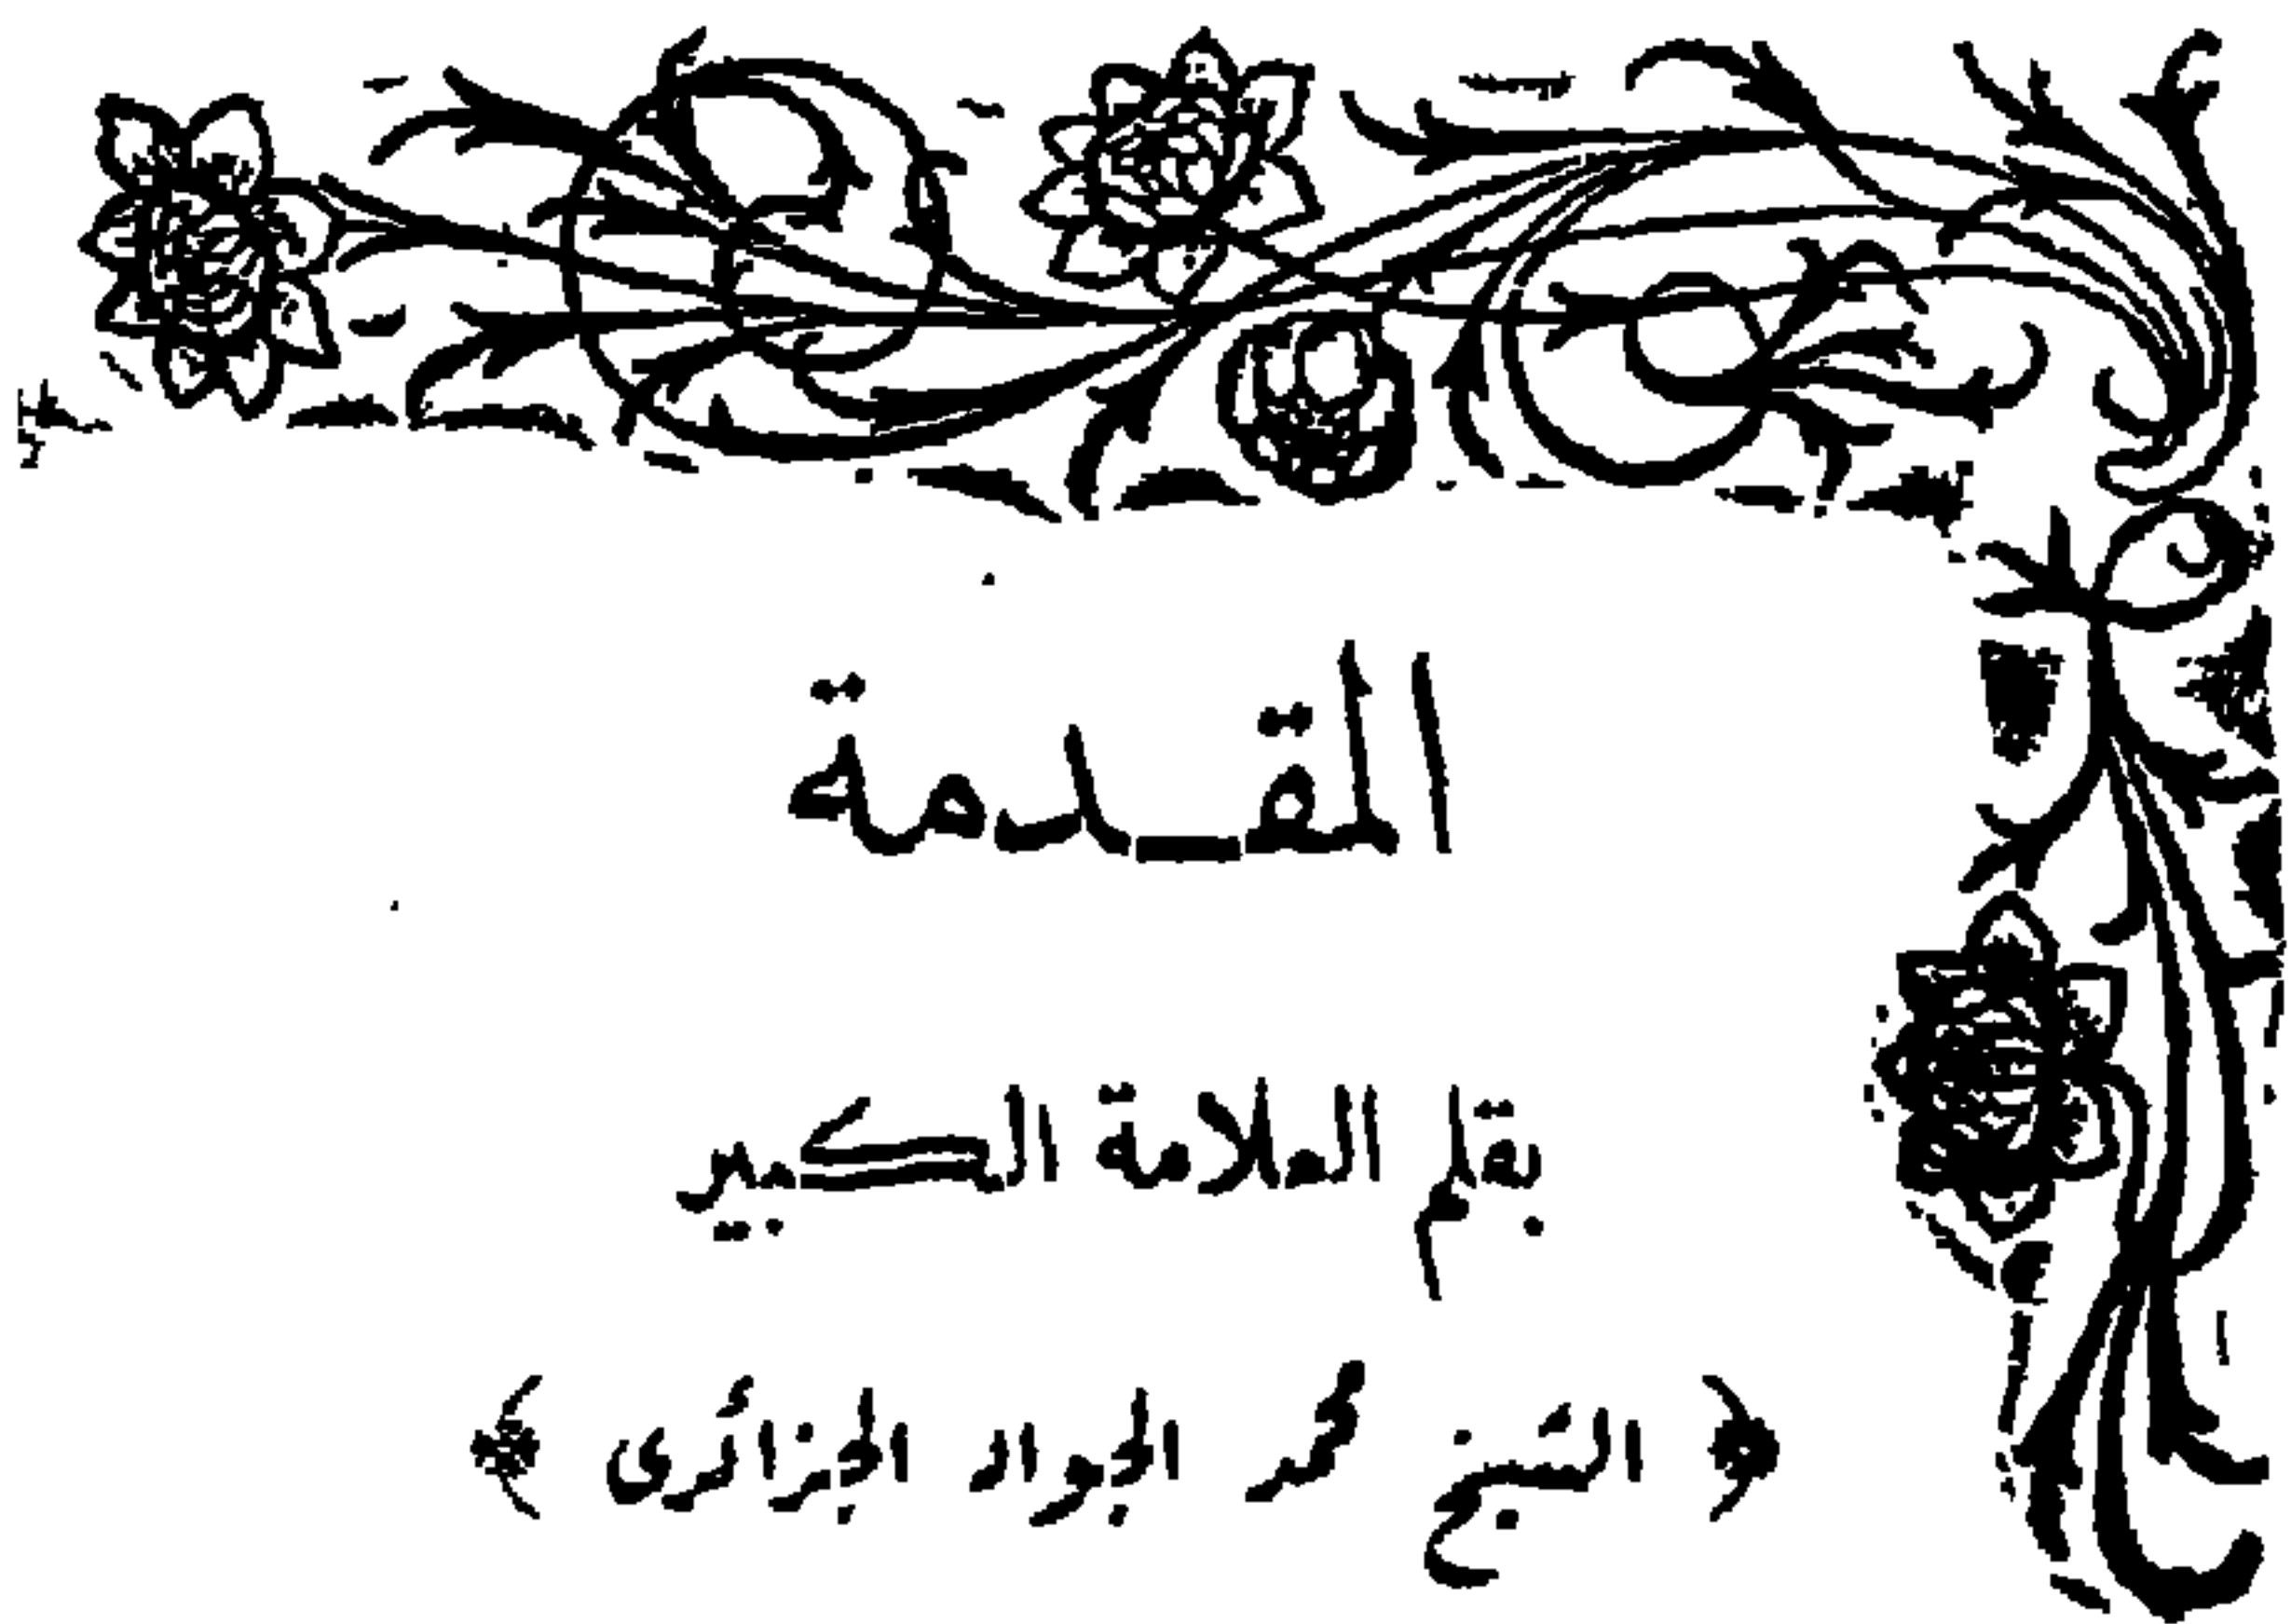 المقدمة
بقلم العلامة الكبير
﴿ الشيخ محمد الجواد الجزائرى ﴾